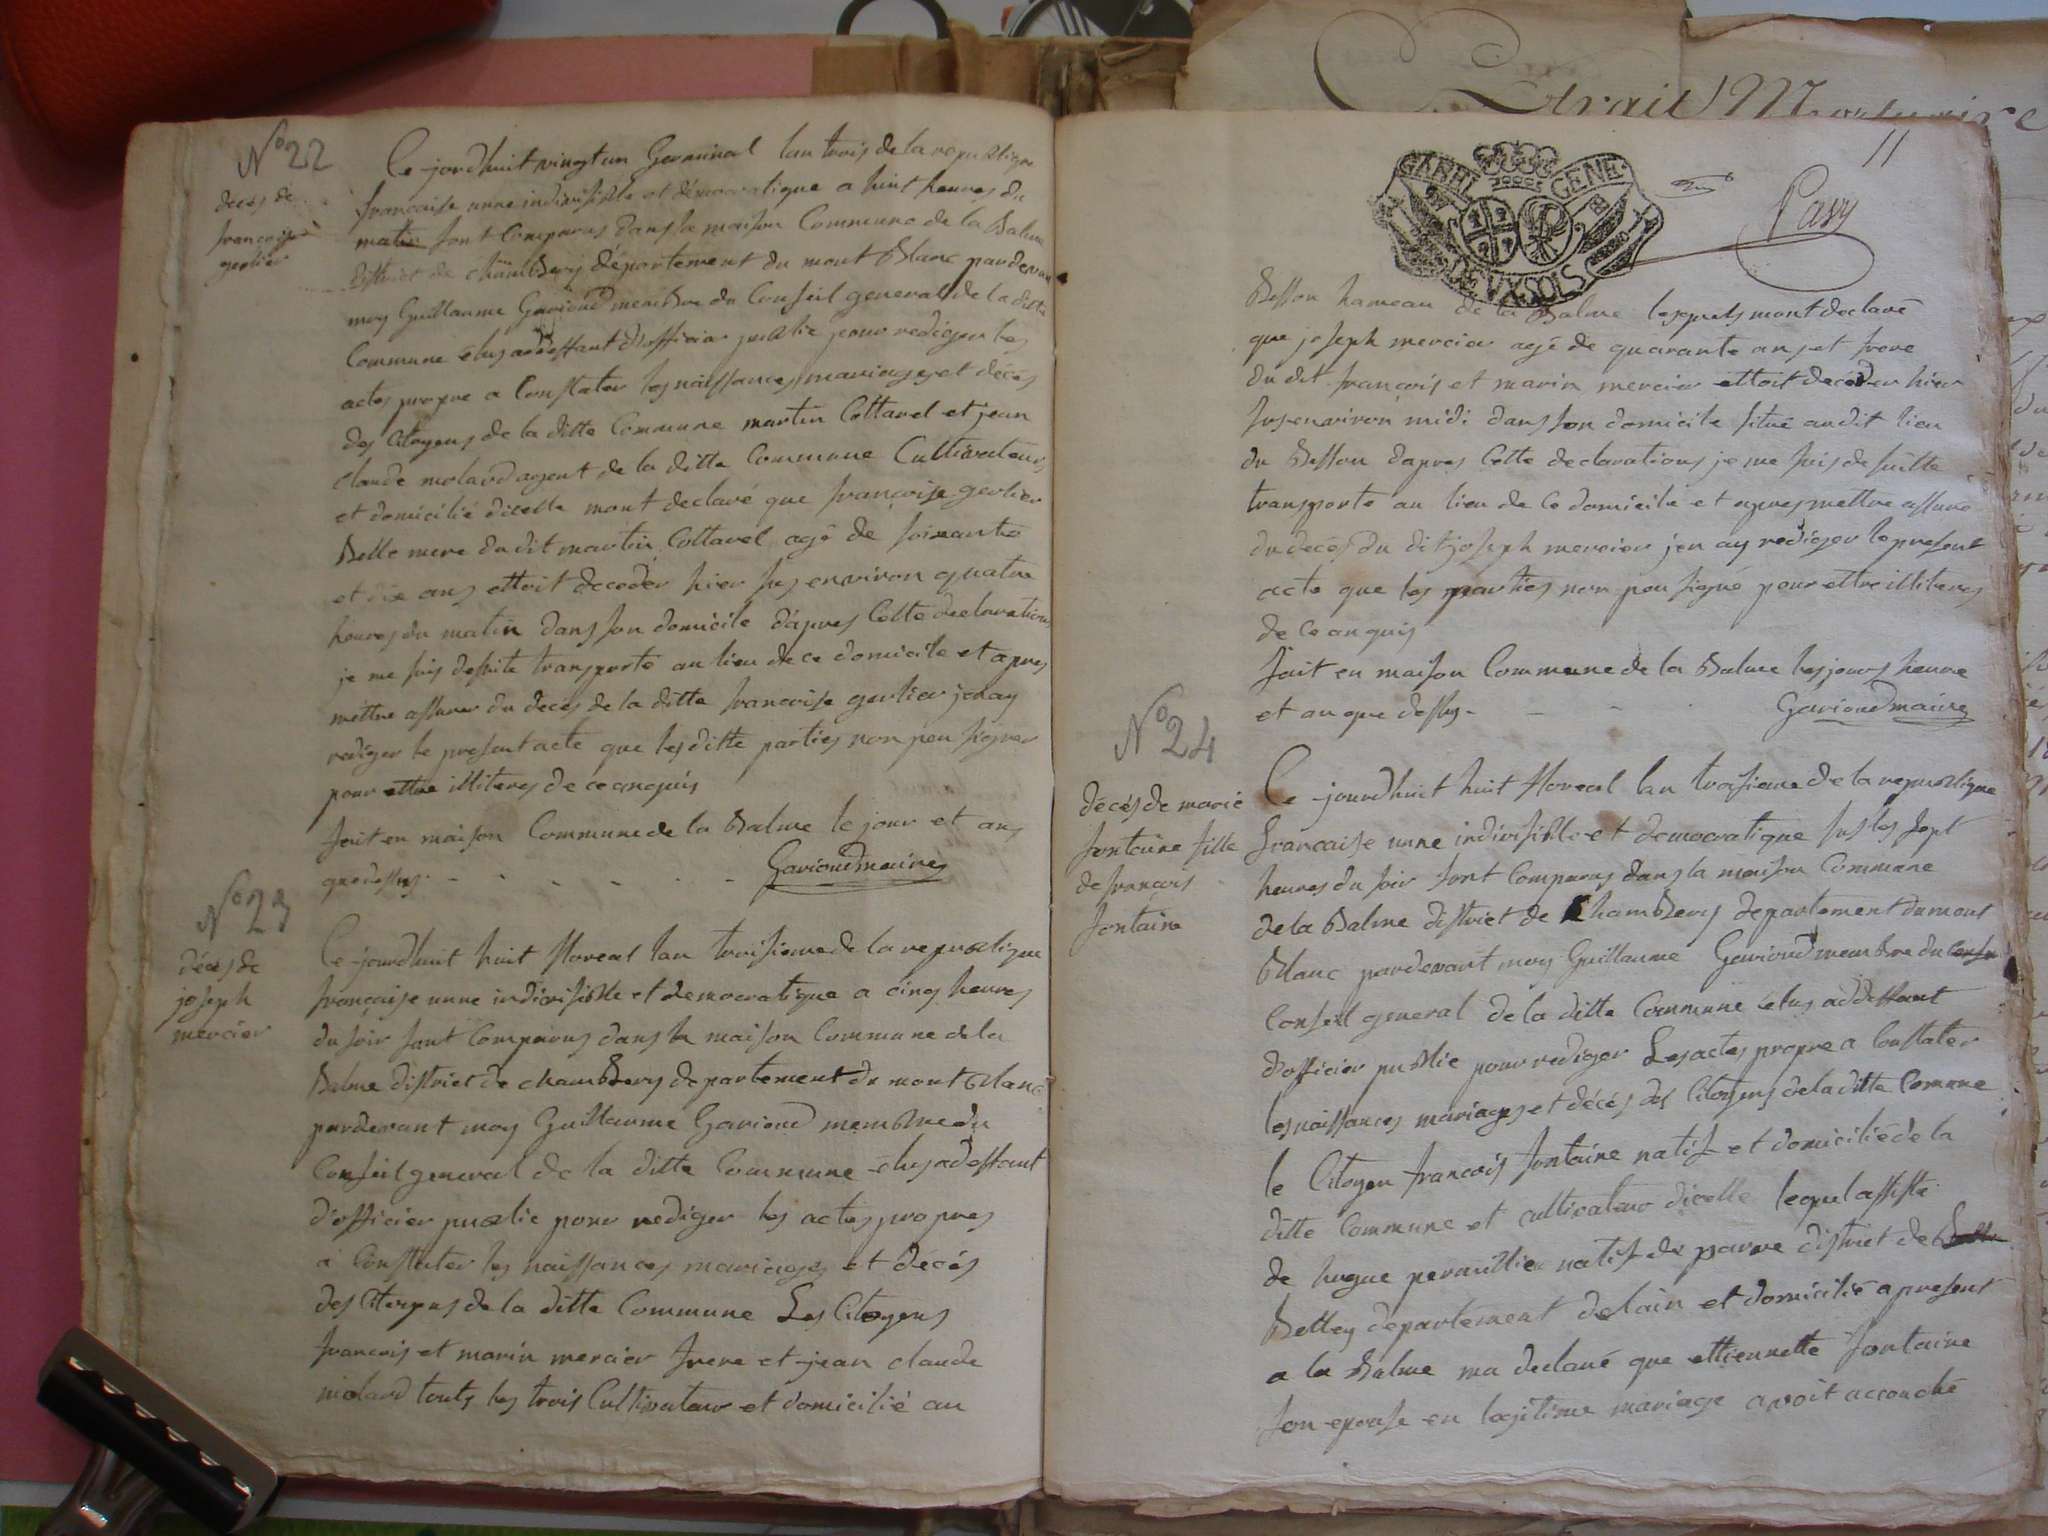 N° 22
décés de
francoise
gerlier
Ce jordhuit vingt un Germinal lan trois de la republique
francaise unne indivisible et démocratique a huit heures du
matin sont Comparus dans la maison Commune de la Balme
district de chambery département du mont Blanc pardevant
moy Guillaume Gavioud membre du Conseil general de la ditte
Commune élus addeffant d'officier public pour rediger les
actes propre a Constater les naissances, mariages et décés
des Citoyens de la ditte Commune martin Cottarel et jean
claude molard agent de la ditte Commune Cultivateurs
et domicilié dicelle mont declaré que françoise gerlier
Belle mere du dit martin Cottarel agé de soixante
et dix ans ettoit deceder hier sus environ quatre
heures du matin dans son domicile d'apres Cette declarations
je me suis desuite transporté au lieu de ce domicile et apres
mettre assurer du deces de la ditte francoise gerlier jenay
rediger le present acte que lesditte parties non peu signer
pour ettre illiteres de ce anquis
fait en maison Commune de la Balme le jour et ans
que dessus - - - - - - Gavioud maire
N° 23
décés de
joseph
mercier
Ce jourd'huit huit floreal lan troisieme de la republique
françaize unne indivisible et democratique a cinq heures
du soir sont Comparus dans la maison Commune de la
Balme district de chambery departement du mont Blanc
pardevant moy Guillaume Gavioud membre du
Conseil general de la ditte Commune élus adeffant
d'officier public pour rediger les actes propres
a Constater les naissances mariages et décés
des Citoyens de la ditte Commune Les Citoyens
francois et marin mercier frere et jean claude
molard touts les trois Cultivateur et domicilié au
Extrait Mortuaire
11
GABEL GENE.
Pavy
Besson hameau de la Balme lesquels mont declaré
que joseph mercier agé de quarante ans et frere
du dit françois et marin mercier ettoit decéder hier
sus environ midi dans son domicile situé au dit lieu
du Besson dapres Cette declarations je me suis de suitte
transporté au lieu de Ce domicile et apres mettre assuré
du decés du dit joseph mercier jen ay rediger le present
acte que les parties non peu signé pour ettre illiteres
de Ce anquis
fait en maison Commune de la Balme les jours heure
et an que dessus - - - - Gavioud maire
N° 24
décés de marie
fontaine fille
de françois
fontaine
Ce jourdhuit huit floreal lan troisieme de la republique
francaise unne indivisible et democratique sus les sept
heures du soir sont Comparus dans la maison Commune
de la Balme district de Chambery departement du mont
Blanc pardevant moy Guillaume Gavioud membre du
Conseil general de la ditte Commune élus addeffant
d'officier public pour rediger Les actes propre a Constater
les naissances mariages et décés des Citoyens de la ditte Comune
le Citoyen francois fontaine natif et domicilié de la
ditte Commune et cultivateur dicelle lequel assisté
de hugue natif de parve district de
Belley departement delain et domicilié a present
a la Balme ma declaré que ettiennette fontaine
son epouse en legitime mariage avoit accouché